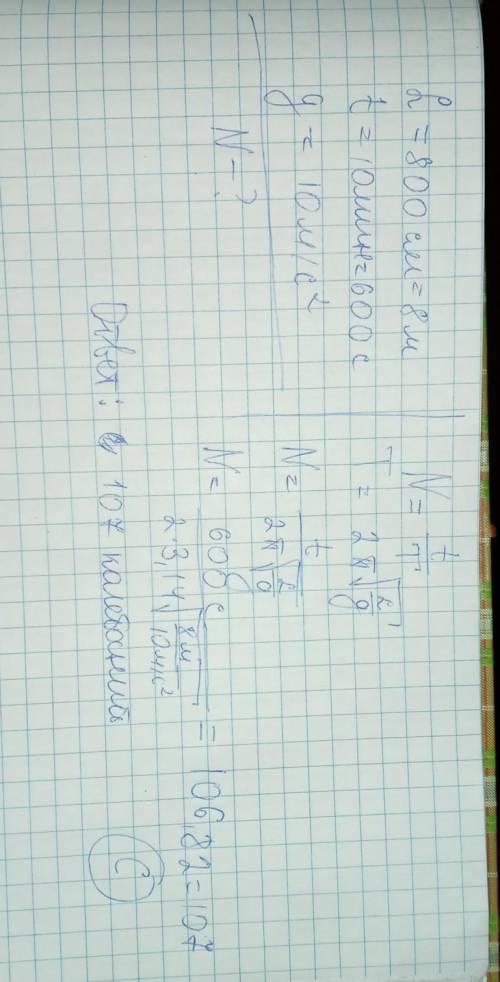 L = 800 см = 8 м
t = 10 мин = 600 с
g = 10 м/с²
N – ?
N = t/T
T = 2π√(L/g)
N = t/(2π√(L/g))
N = 600 с/(2·3,14√(8 м/10 м/с²)) = 106,82 = 107
Ответ: 107 калебаний
C